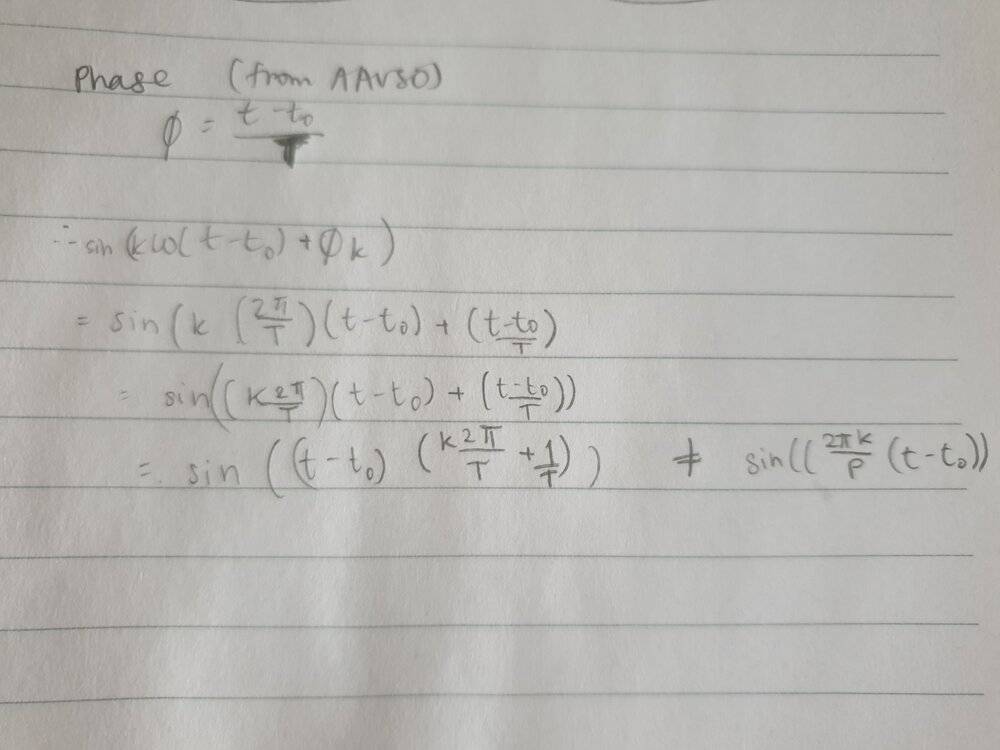 Phase (from AAVSO)
φ = (t - t₀)/T
∴ sin(kω(t-t₀) + φk)
= sin(k (2π/T)(t-t₀) + (t-t₀/T)
= sin((k2π/T)(t-t₀) + (t-t₀/T))
= sin((t-t₀) (k2π/T + 1/T)) ≠ sin((2πk/P (t-t₀))